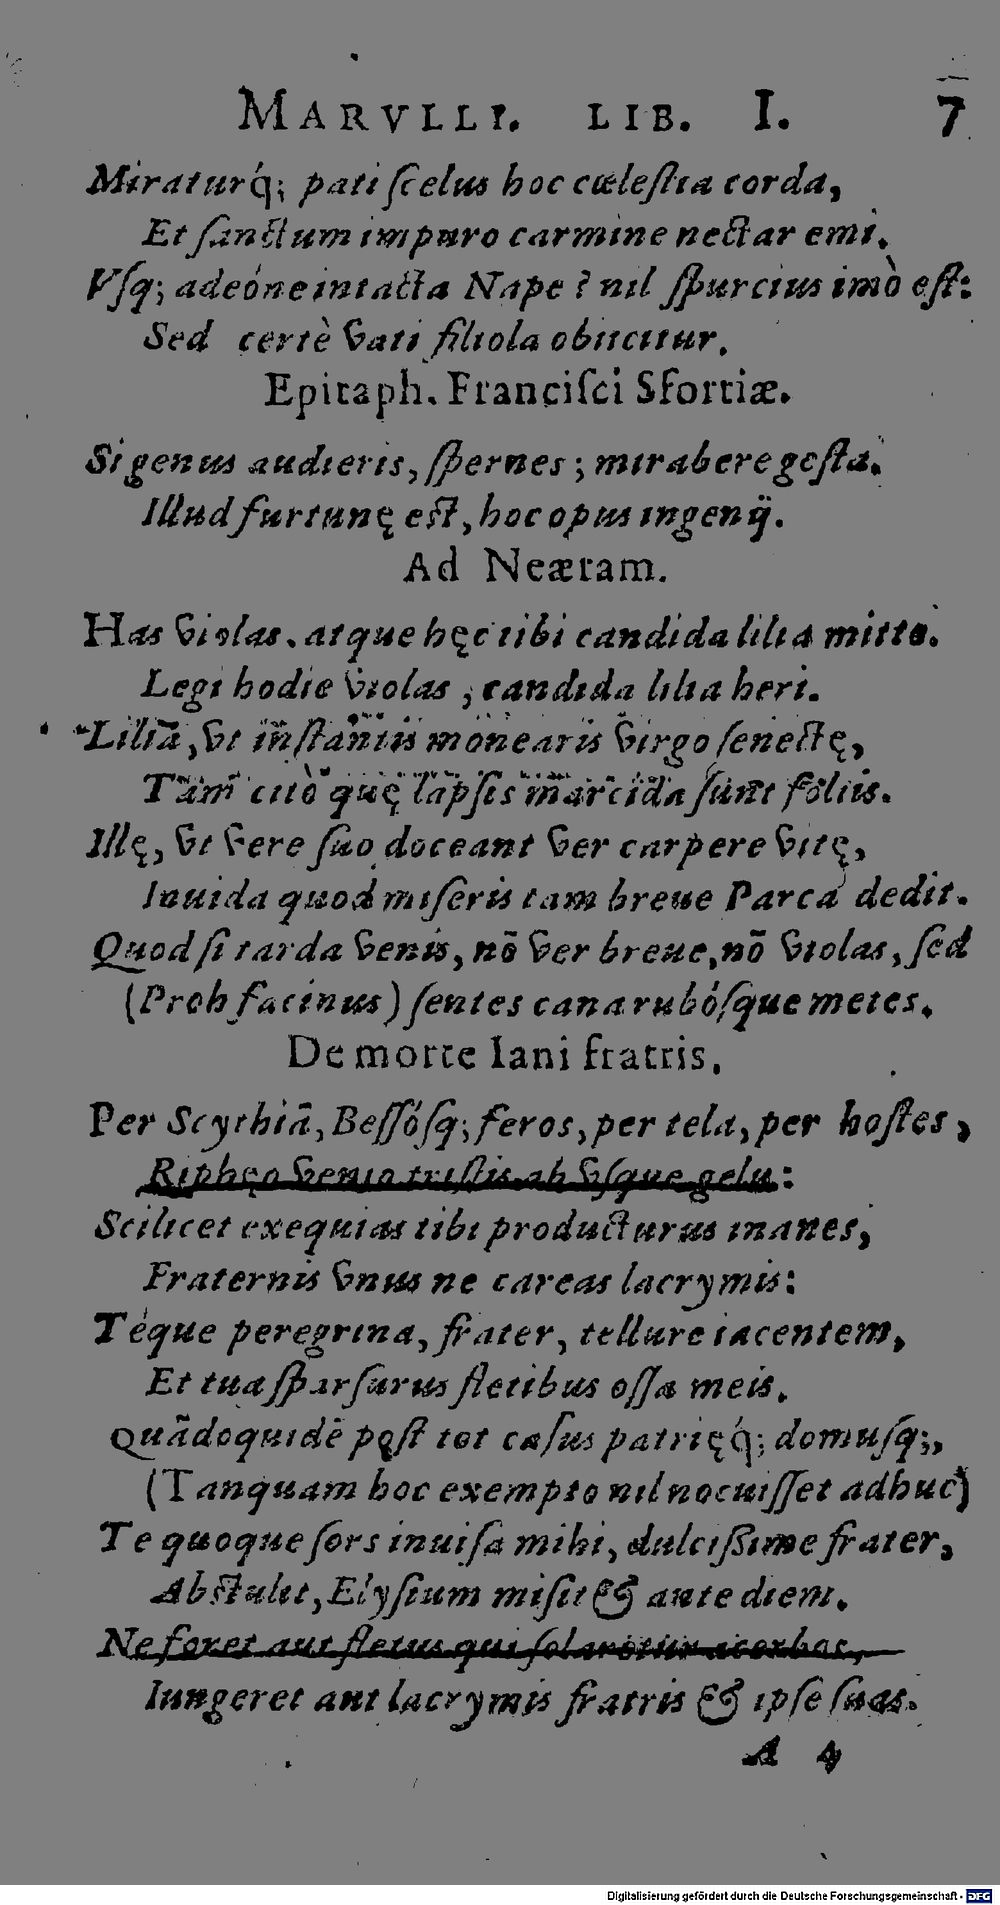 MARVLLI. LIB. I. 7
Miraturq́; pati ſcelus hoc cœleſtia corda,
Et ſanctum impuro carmine nectar emi.
Vſq; adeóne intacta Nape? nil ſpurcius imò eſt:
Sed certè vati filiola obiicitur.
Epitaph. Franciſci Sfortiæ.
Si genus audieris, ſpernes; mirabere geſta.
Illud furtunę eſt, hoc opus ingenij.
Ad Neæram.
Has violas. atque hęc tibi candida lilia mitto.
Legi hodie violas, candida lilia heri.
Lilia, vt inſtantis monearis virgo ſenectę,
Tam citò quę lapſis marcida ſunt foliis.
Illę, vt vere ſuo doceant ver carpere vitę,
Inuida quod miſeris tam breue Parca dedit.
Quod ſi tarda venis, nō ver breue, nō violas, ſed
(Proh facinus) ſentes cana rubóſque metes.
De morte Iani fratris.
Per Scythiā, Beſſóſq; feros, per tela, per hoſtes,
Riphęo venio triſtis ab vſque gelu:
Scilicet exequias tibi producturus inanes,
Fraternis vnus ne careas lacrymis:
Téque peregrina, frater, tellure iacentem,
Et tua ſparſurus fletibus oſſa meis.
Quādoquidē poſt tot caſus patrięq́; domuſq́;,
(Tanquam hoc exempto nil nocuiſſet adhuc)
Te quoque ſors inuiſa mihi, dulciſsime frater,
Abſtulit, Elyſium miſit & ante diem.
Ne foret aut fletus qui ſolaretur acerbos,
Iungeret aut lacrymis fratris & ipſe ſuas.
A 4
Digitalisierung gefördert durch die Deutsche Forschungsgemeinschaft - DFG